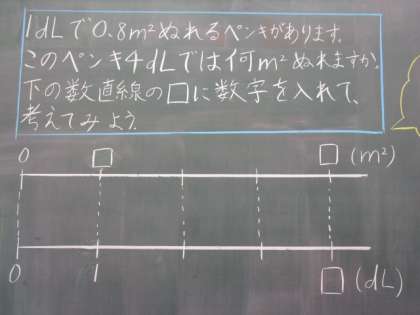 1dLで0.8m²ぬれるペンキがあります。
このペンキ4dLでは何m²ぬれますか。
下の数直線の□に数字を入れて、
考えてみよう。
0 □ □ (m²)
0 1 □ (dL)